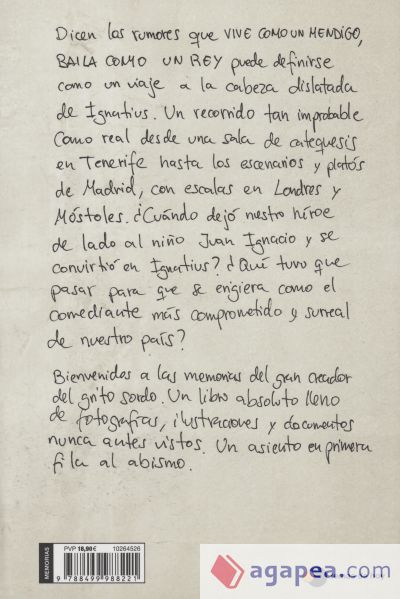 Dicen los rumores que VIVE COMO UN MENDIGO,
BAILA COMO UN REY puede definirse
como un viaje a la cabeza dislatada
de Ignatius. Un recorrido tan improbable
como real desde una sala de catequesis
en Tenerife hasta los escenarios y platós
de Madrid, con escalas en Londres y
Móstoles. ¿Cuándo dejó nuestro héroe
de lado al niño Juan Ignacio y se
convirtió en Ignatius? ¿Qué tuvo que
pasar para que se erigiera como el
comediante más comprometido y surreal
de nuestro país?
Bienvenidos a las memorias del gran creador
del grito sordo. Un libro absoluto lleno
de fotografías, ilustraciones y documentos
nunca antes vistos. Un asiento en primera
fila al abismo.
MEMORIAS
PVP 18,90 € 10264526
9 788499 988221
agapea.com